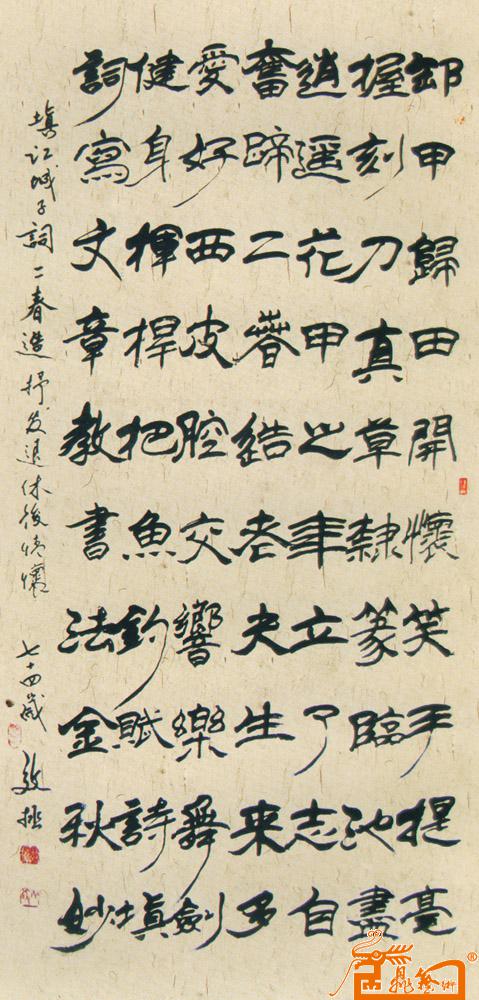 卸甲歸田開懷笑手提毫
握刻刀真草隸篆臨池盡
逍遥花甲之年立了志自
奮蹄二春造老夫生来多
愛好西皮腔交響樂舞劍
健身揮桿把魚釣賦詩填
詞寫文章教書法金秋妙
填江城子詞二春造抒发退休後情懷 七十四歲